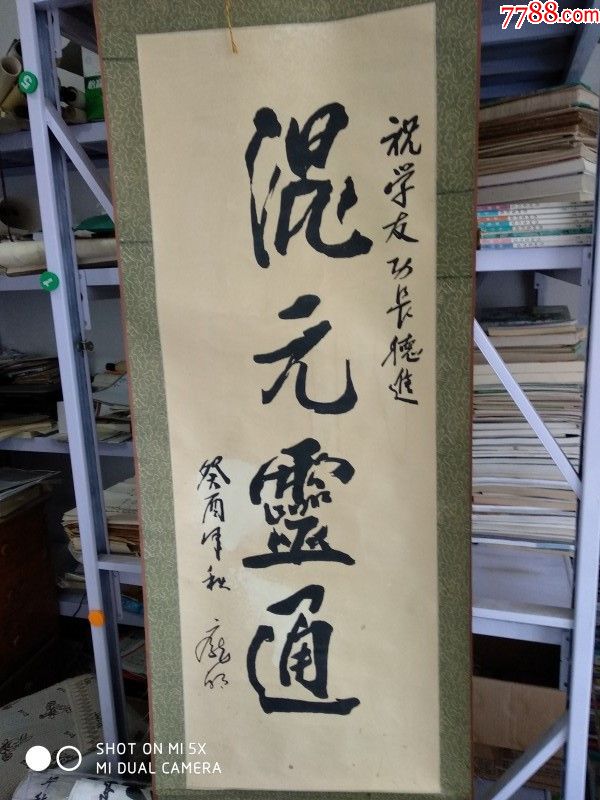 7788.com
祝学友功长德進
混元靈通
癸酉年秋 庞明
5
1
SHOT ON MI 5X
MI DUAL CAMERA